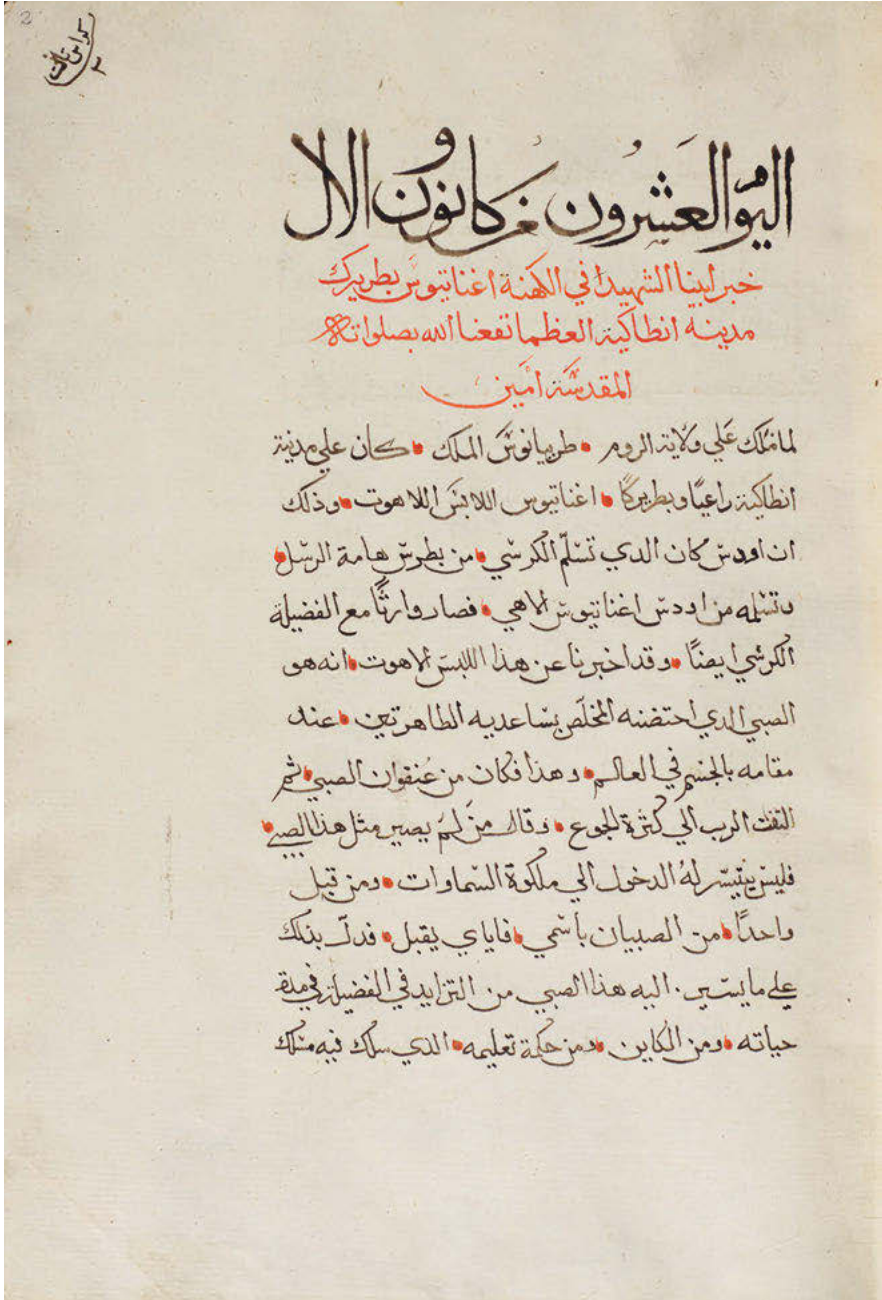 2
كراس تالت
٣
اليوم العشرون من كانون الاول
خبر ابينا الشهيدا في الكهنة اغناتيوس بطريرك
مدينه انطاكية العظما نفعنا الله بصلواته
المقدسة امين
لما تملك علي ولاية الروم • طربيانوس الملك • كان علي مدينة
انطاكية راعيًا وبطريركًا • اغناتيوس اللابس اللاهوت • وذلك
ان اودس كان الدي تسلّم الكرسي • من بطرس هامة الرسل •
وتسلمه من اودس اغناتيوس الاهي • فصار وارثًا مع الفضيلة
الكرسي ايضًا • وقد اخبرنا عن هذا اللابس الاهوت • انه هو
الصبي الدي احتضنه المخلّص بساعديه الطاهرتين • عند
مقامه بالجسم في العالم • وهذا فكان من عُنفوان الصبي • ثم
التفت الرب الي كثرة الجموع • وقال من لم يصير مثل هذا الصبي •
فليس يتيسّر لهُ الدخول الي ملكوة السماوات • ومن قبل
واحدًا • من الصبيان باسمي • فاياي يقبل • فدلّ بذلك
علي ما يسير . اليه هذا الصبي من التزايد في الفضيلة في مدة
حياته • ومن الكاين • ومن حكمة تعليمه • الذي سلك فيه مسلك